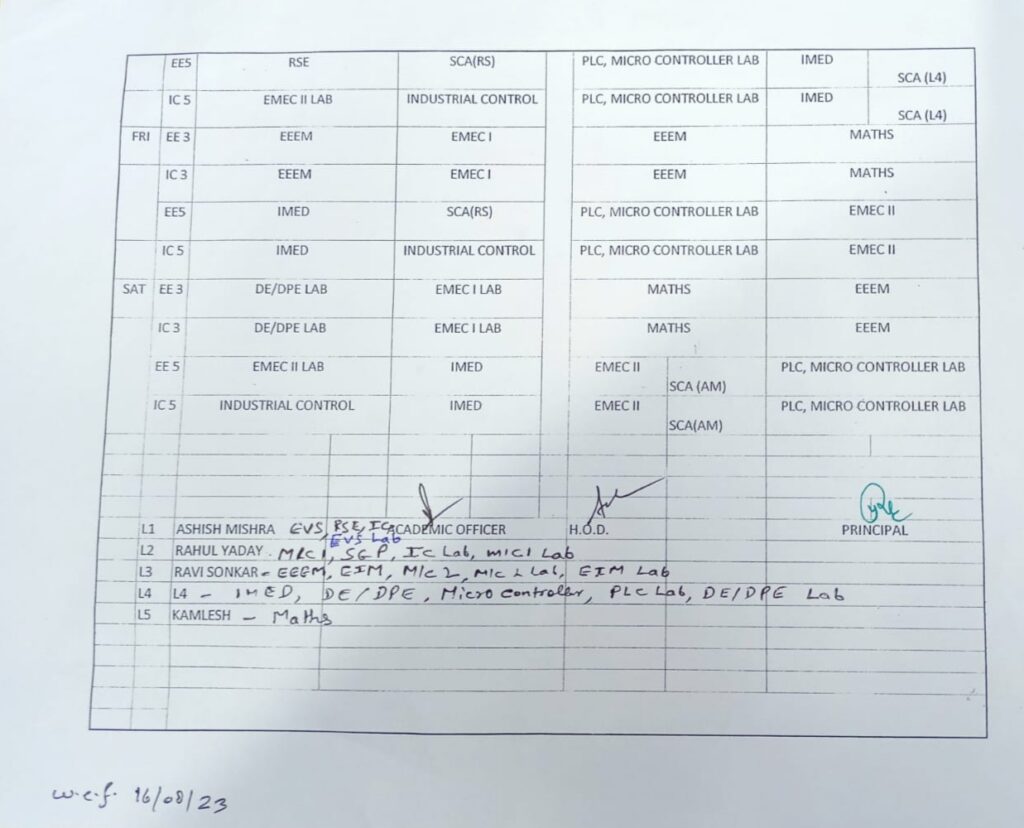 EE5 RSE SCA(RS) PLC, MICRO CONTROLLER LAB IMED SCA (L4)
IC 5 EMEC II LAB INDUSTRIAL CONTROL PLC, MICRO CONTROLLER LAB IMED SCA (L4)
FRI EE 3 EEEM EMEC I EEEM MATHS
IC 3 EEEM EMEC I EEEM MATHS
EE5 IMED SCA(RS) PLC, MICRO CONTROLLER LAB EMEC II
IC 5 IMED INDUSTRIAL CONTROL PLC, MICRO CONTROLLER LAB EMEC II
SAT EE 3 DE/DPE LAB EMEC I LAB MATHS EEEM
IC 3 DE/DPE LAB EMEC I LAB MATHS EEEM
EE 5 EMEC II LAB IMED EMEC II SCA (AM) PLC, MICRO CONTROLLER LAB
IC 5 INDUSTRIAL CONTROL IMED EMEC II SCA(AM) PLC, MICRO CONTROLLER LAB
L1 ASHISH MISHRA EVS, RSE, IC, ACADEMIC OFFICER H.O.D. PRINCIPAL
EVS Lab
L2 RAHUL YADAY. M/C 1, SGP, IC Lab, M/C 1 Lab
L3 RAVI SONKAR - EEEM, EIM, M/C 2, M/C 2 Lab, EIM Lab
L4 L4 - IMED, DE/DPE, Micro controller, PLC Lab, DE/DPE Lab
L5 KAMLESH - Maths
w.e.f. 16/08/23